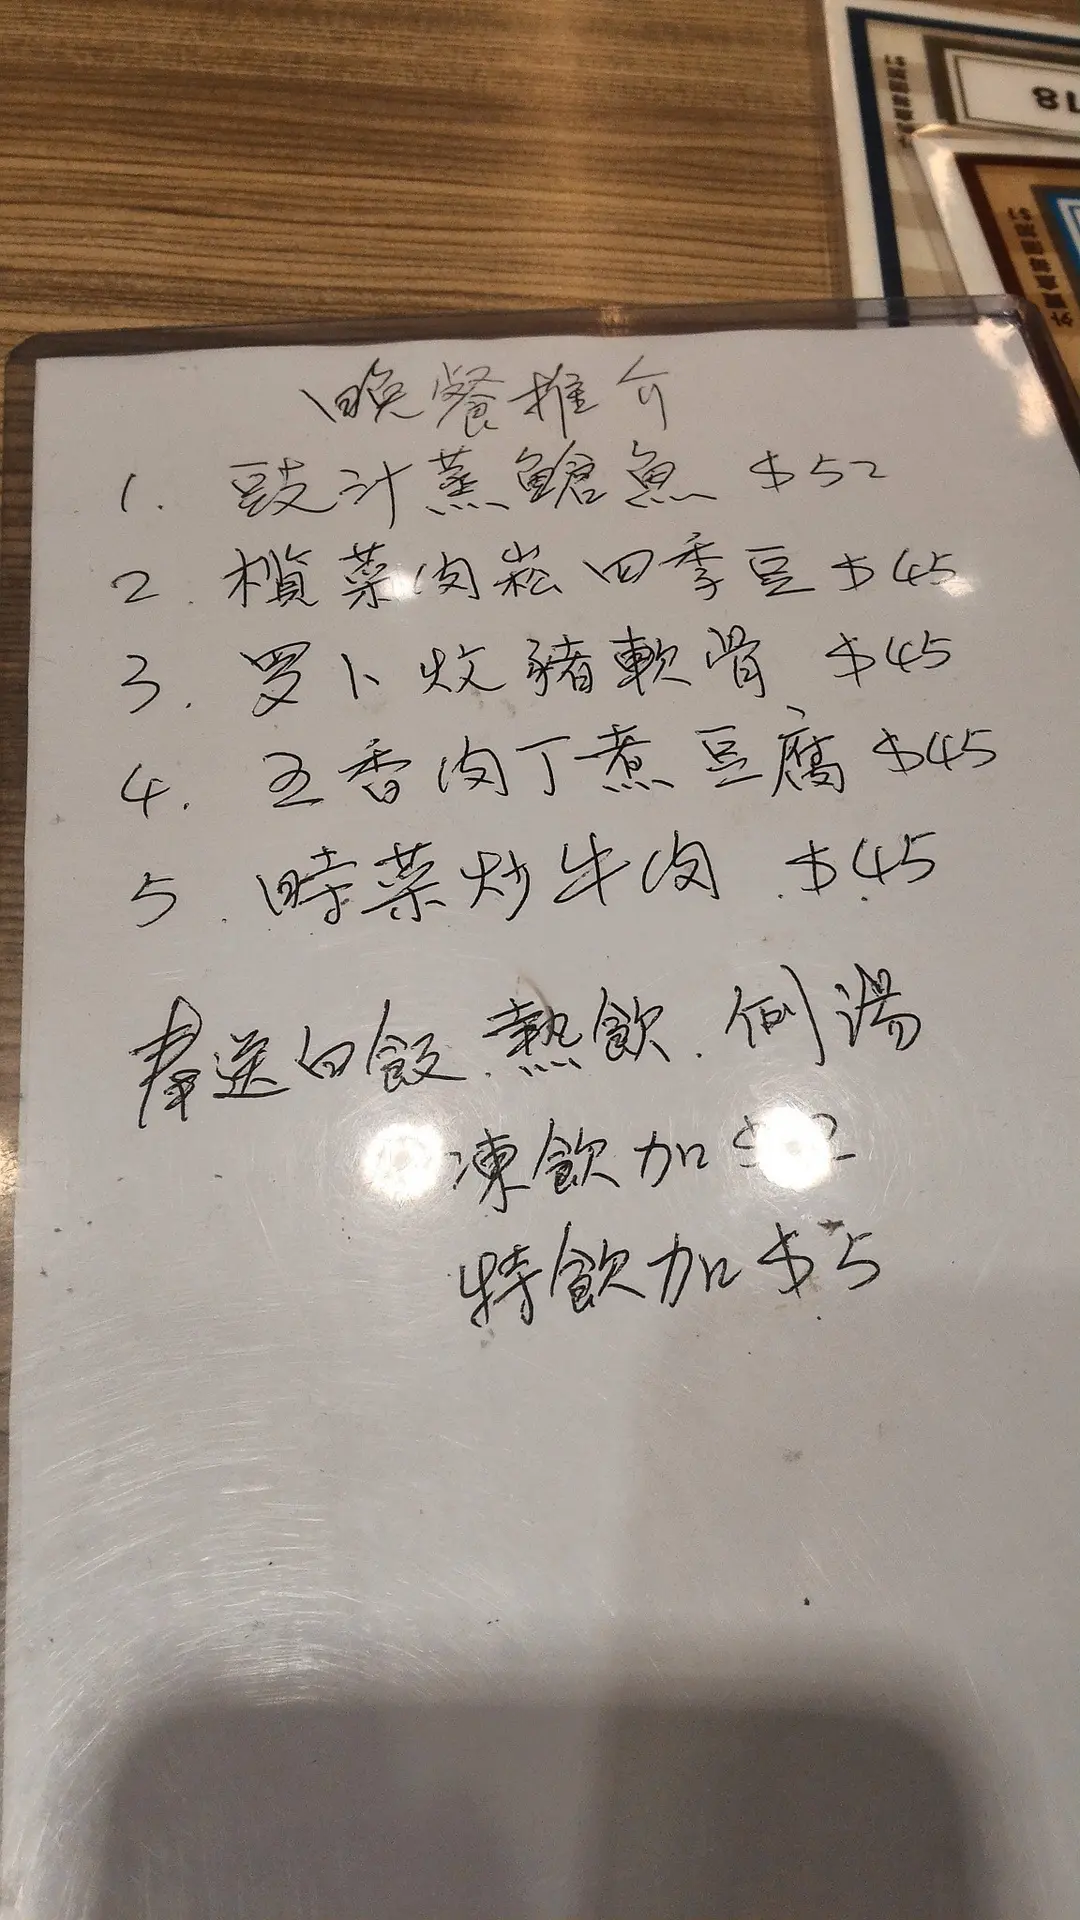 晚餐推介
1. 豉汁蒸鯧魚 $52
2. 欖菜肉崧四季豆 $45
3. 罗卜炆豬軟骨 $45
4. 五香肉丁煮豆腐 $45
5. 時菜炒牛肉 $45
奉送白飯.熱飲.例湯
凍飲加
特飲加 $5
18